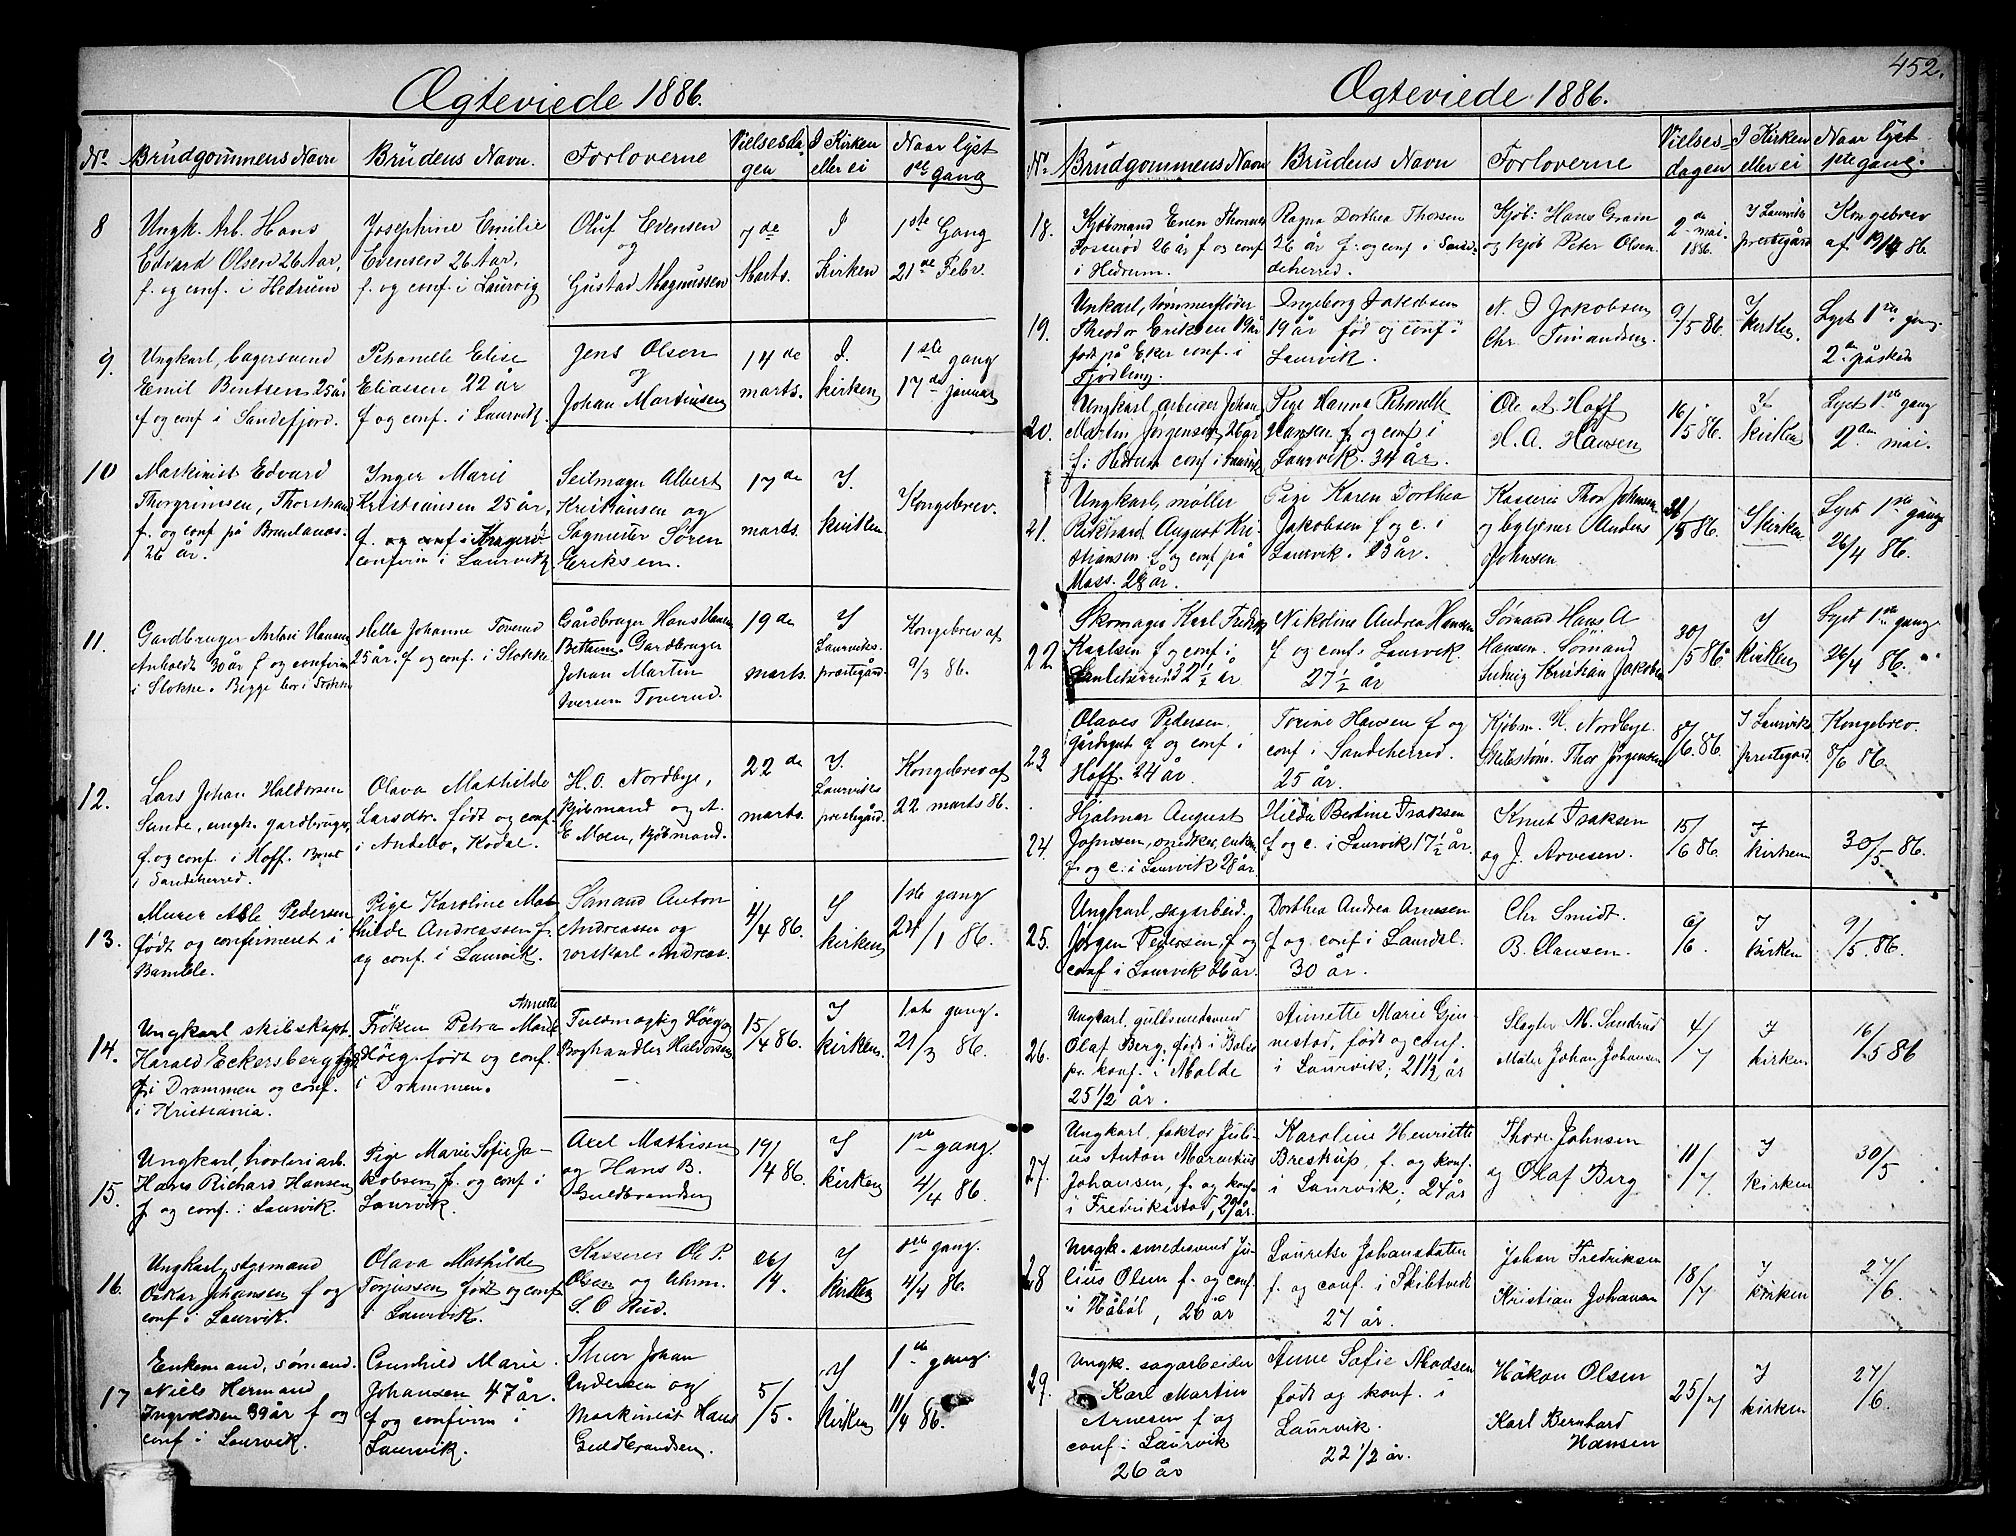 Ægteviede 1886.
No. Brudgommens Navn Brudens Navn. Forloverne Vielsesdagen I Kirken eller ei Naar lyst 1ste gang
8 Ungk. Arb. Hans
Edvard Olsen 26 Aar,
f. og conf. i Hedrum
Josephine Emilie
Evensen 26 Aar,
f. og conf. i Laurvig
Oluf Evensen
og
Gustad Magnussen
7de
Marts.
I
Kirken
1ste Gang
21de Febr.
9. Ungkarl, bagersvend
Emil Bentsen 25 år
f og conf i Sandefjord.
Petranelle Elise
Eliassen 22 år
f og conf. i Laurvik
Jens Olsen
og
Johan Martinsen
14de
marts.
I.
kirken
1ste gang
17de januar
10 Maskinist Edvard
Thorgrimsen,
f. og conf på
26 år.
Inger Marie
Kristiansen 25 år,
f. og conf i Kragerö
confirm i Laurvik
Seilmager Albert
Kristiansen og
Sagmester Sören
Eriksen.
17de
marts.
I.
kirken
Kongebrev.
11. Gardbruger Anton Hansen
Anholdt 30 år f og confirm
i Stokke. Begge bor i Stokke
Hella Johanne Töverud
25 år. f og conf. i Stokke
Gårdbruger Hans Hansen
Bettum. Gardbruger
Johan Martin
Iversen Töverud.
19de
marts.
I
Laurviks
prestegård
Kongebrev af
9/3 86.
12. Lars Johan Haldorsen
Sande, ungk. gardbruger,
f. og conf. i Hoff. Boent
i Sandeherred.
Olava Mathilde
Larsdtr. født og conf.
i Andebo, Kodal.
H. O. Nordbye,
kjöbmand og A.
E Moen, kjöbmand.
22de
marts.
I.
Laurviks
prestegård.
Kongebrev af
22 marts 86.
13. Murer Atle Pedersen
født og confirmeret i
Bamble.
Pige Karoline Mat-
hilde Andreassen f.
og conf. i Laurvik.
Sömand Anton
Andreassen og
Andreas.
4/4 86.
I
kirken
1ste gang
24/1 86.
14. Ungkarl skibskapt.
Harald Eckersberg
i Drammen og conf.
i Kristiania.
Annette
Fröken Petra Marie
Höeg født og conf.
i Drammen.
Fuldmægtig Höeg og
Boghandler Haldorsen
15/4 86.
I
kirken.
1ste gang.
21/3 86.
15. Ungkarl, hövleriarb.
Hans Richard Hansen
f og conf. i Laurvik.
Pige Marie Sofie Ja-
kobsen f. og conf i
Laurvik.
Axel Mathisen
og Hans B.
Guldbrandsen
19/4 86.
I
kirken
1ste gang.
4/4 86.
16. Ungkarl, styrmand
Oskar Johansen f og
conf i Laurvik.
Olava Mathilde
Torjussen født og conf
i Laurvik.
Kasserer Ole P.
Olsen og
S. O Rud.
26/4.
I
kirken
1ste gang.
4/4 86.
17 Enkemand, sømand.
Niels Hermand
Ingvoldsen 39 år f og
conf i Laurvik.
Gunhild Marie
Johansen 47 år.
f og confirm i
Laurvik.
Stuer Johan
Andersen og
Maskinist Hans
Guldbrandsen.
5/5.
I
kirken
1ste gang.
11/4 86.
452.
Ægteviede 1886.
No. Brudgommens Navn Brudens Navn Forloverne Vielsesdagen I Kirken eller ei Naar lyst 1ste gang.
18. Kjöbmand Even
26 år f og conf
i Hedrum.
Ragna Dorthea Thorsen
26 år f. og conf i Sande-
deherred.
Kjöb: Hans Grain
og kjöb Peter Olsen.
2de
mai.
1886.
I Laurviks
prestegård
Kongebrev
af 19/4 86.
19. Unkarl, tømmerfløder
Theodor Eriksen 19 år
født på Eker conf. i
Fjödling.
Ingeborg Jakobsen
19 år født og conf i
Laurvik.
N. J Jakobsen
Chr.
9/5 86.
I
kirken.
Lyst 1ste gang
2den påskedag
20. Ungkarl, arbeider Johan
Martin Jörgensen, 26 år
f i Hedrum conf i Laurvik
Pige Hanna
Hansen f. og conf i
Laurvik. 34 år.
Ole A Hoff
H. A. Hansen
16/5 86.
I
kirken
Lyst 1ste gang
2den mai.
21. Ungkarl, møller
Rikkhard August Kri-
stiansen f og conf på
Moss. 28 år.
Pige Karen Dorthea
Jakobsen f og c. i
Laurvik. 23 år.
Kasserer Thor Johnsen
og bytjener Anders
Johnsen
/5 86.
I kirken
Lyst 1ste gang
26/4 86.
22 Skomager Karl Fredrik
Karlsen f og conf i
Sandeherred 22 1/2 år
Nikoline Andrea Hansen
f og conf i Laurvik.
27 1/2 år
Sömand Hans A
Hansen. Sömand
Ludvig Kristian Jakobsen
30/5 86.
I
kirken
Lyst 1ste gang
26/4 86.
23 Olaves Pedersen
Gårdgut f og conf i
Hoff. 24 år.
Torine Hansen f og
conf i Sandeherred.
25 år.
Kjöbm. H. Nordbye.
Thor Jørgensen
8/6 86.
I Laurviks
prestegård.
Kongebrev
8/6 86.
24. Hjalmar August
Johnsen, snedker, enkem.
f. og c. i Laurvik 28 år.
Hilda Bertine Isaksen
f og c. i Laurvik 17 1/2 år.
Knut Isaksen
og J. Arvesen.
15/6 86.
I
kirken
30/5 86.
25. Ungkarl, sagarbeid.
Jörgen Pedersen, f og
conf i Laurvik 26 år.
Dorthea Andrea Arnesen
f og conf i Laurdal.
30 år.
Chr Smidt.
B. Clausen.
6/6
I
kirken
9/5. 86.
26. Ungkarl, guldsmedsvend
Olaf Berg, født i Bolsö
pr. konf. i Molde
25 1/2 år.
Annette Marie Gjen-
nestad, født og conf.
i Laurvik; 21 1/2 år
Slagter M. Sundrud
Maler Johan Johansen
4/7
I
kirken
16/5 86
27. Ungkarl, faktor Juli-
us Anton Marcelius
Johansen, f. og konf.
i Fredriksstad, 29 år.
Karoline Henriette
Brestrup, f. og konf.
i Laurvik; 24 år
Thorv. Johnsen
og Olaf Berg
11/7
I
kirken
30/5
28 Ungk. smedesvend Ju-
lius Olsen f. og conf.
i Håböl, 26 år
Lauretse Johansdatter
f. og conf. i Skibtvedt
27 år.
Johan Fredriksen
Kristian Johansen
18/7
I
kirken
27/6.
29. Ungk. sagarbeider
Karl Martin
Arnesen f og
conf i Laurvik
26 år
Anne Sofie Madsen
født og konf. i
Laurvik.
22 1/2 år.
Håkon Olsen
Karl Bernhard
Hansen
25/7
I
kirken
27/6.